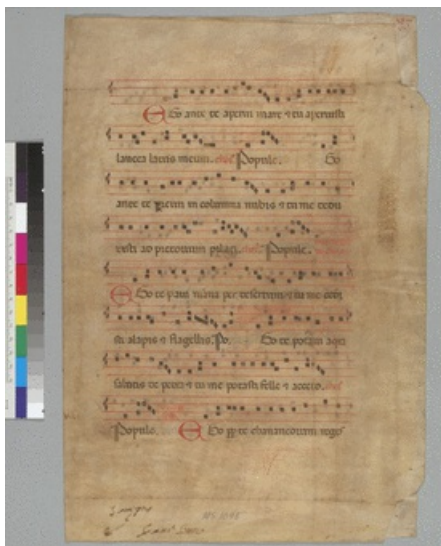 Ego ante te aperui mare ⁊ tu aperuisti
lancea latus meum. Popule. Ego
ante te preivi in columna nubis ⁊ tu me dedu
xisti ad pretorium pylati. Popule.
Ego te pavi manna per desertum ⁊ tu me cedi
sti alapis ⁊ flagellis. Po. Ego te potavi aqua
salutis de petra ⁊ tu me potasti felle ⁊ aceto.
Popule. Ego pp te chananeorum reges